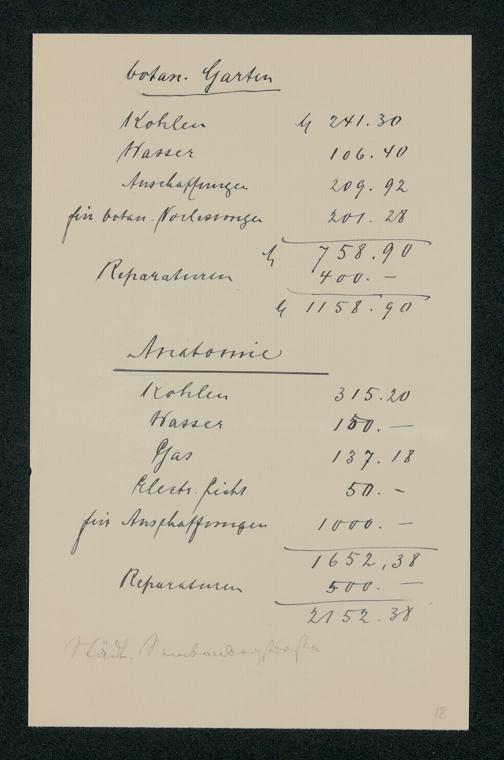 botan. Garten
Kohlen M 241.30
Wasser 106.40
Anschaffungen 209.92
für botan. Vorlesungen 201.28
M 758.90
Reparaturen 400.—
M 1158.90
Anatomie
Kohlen 315.20
Wasser 150.—
Gas 137.18
Electr. Licht 50.—
für Anschaffungen 1000.—
1652,38
Reparaturen 500.—
2152.38
Städt.
18